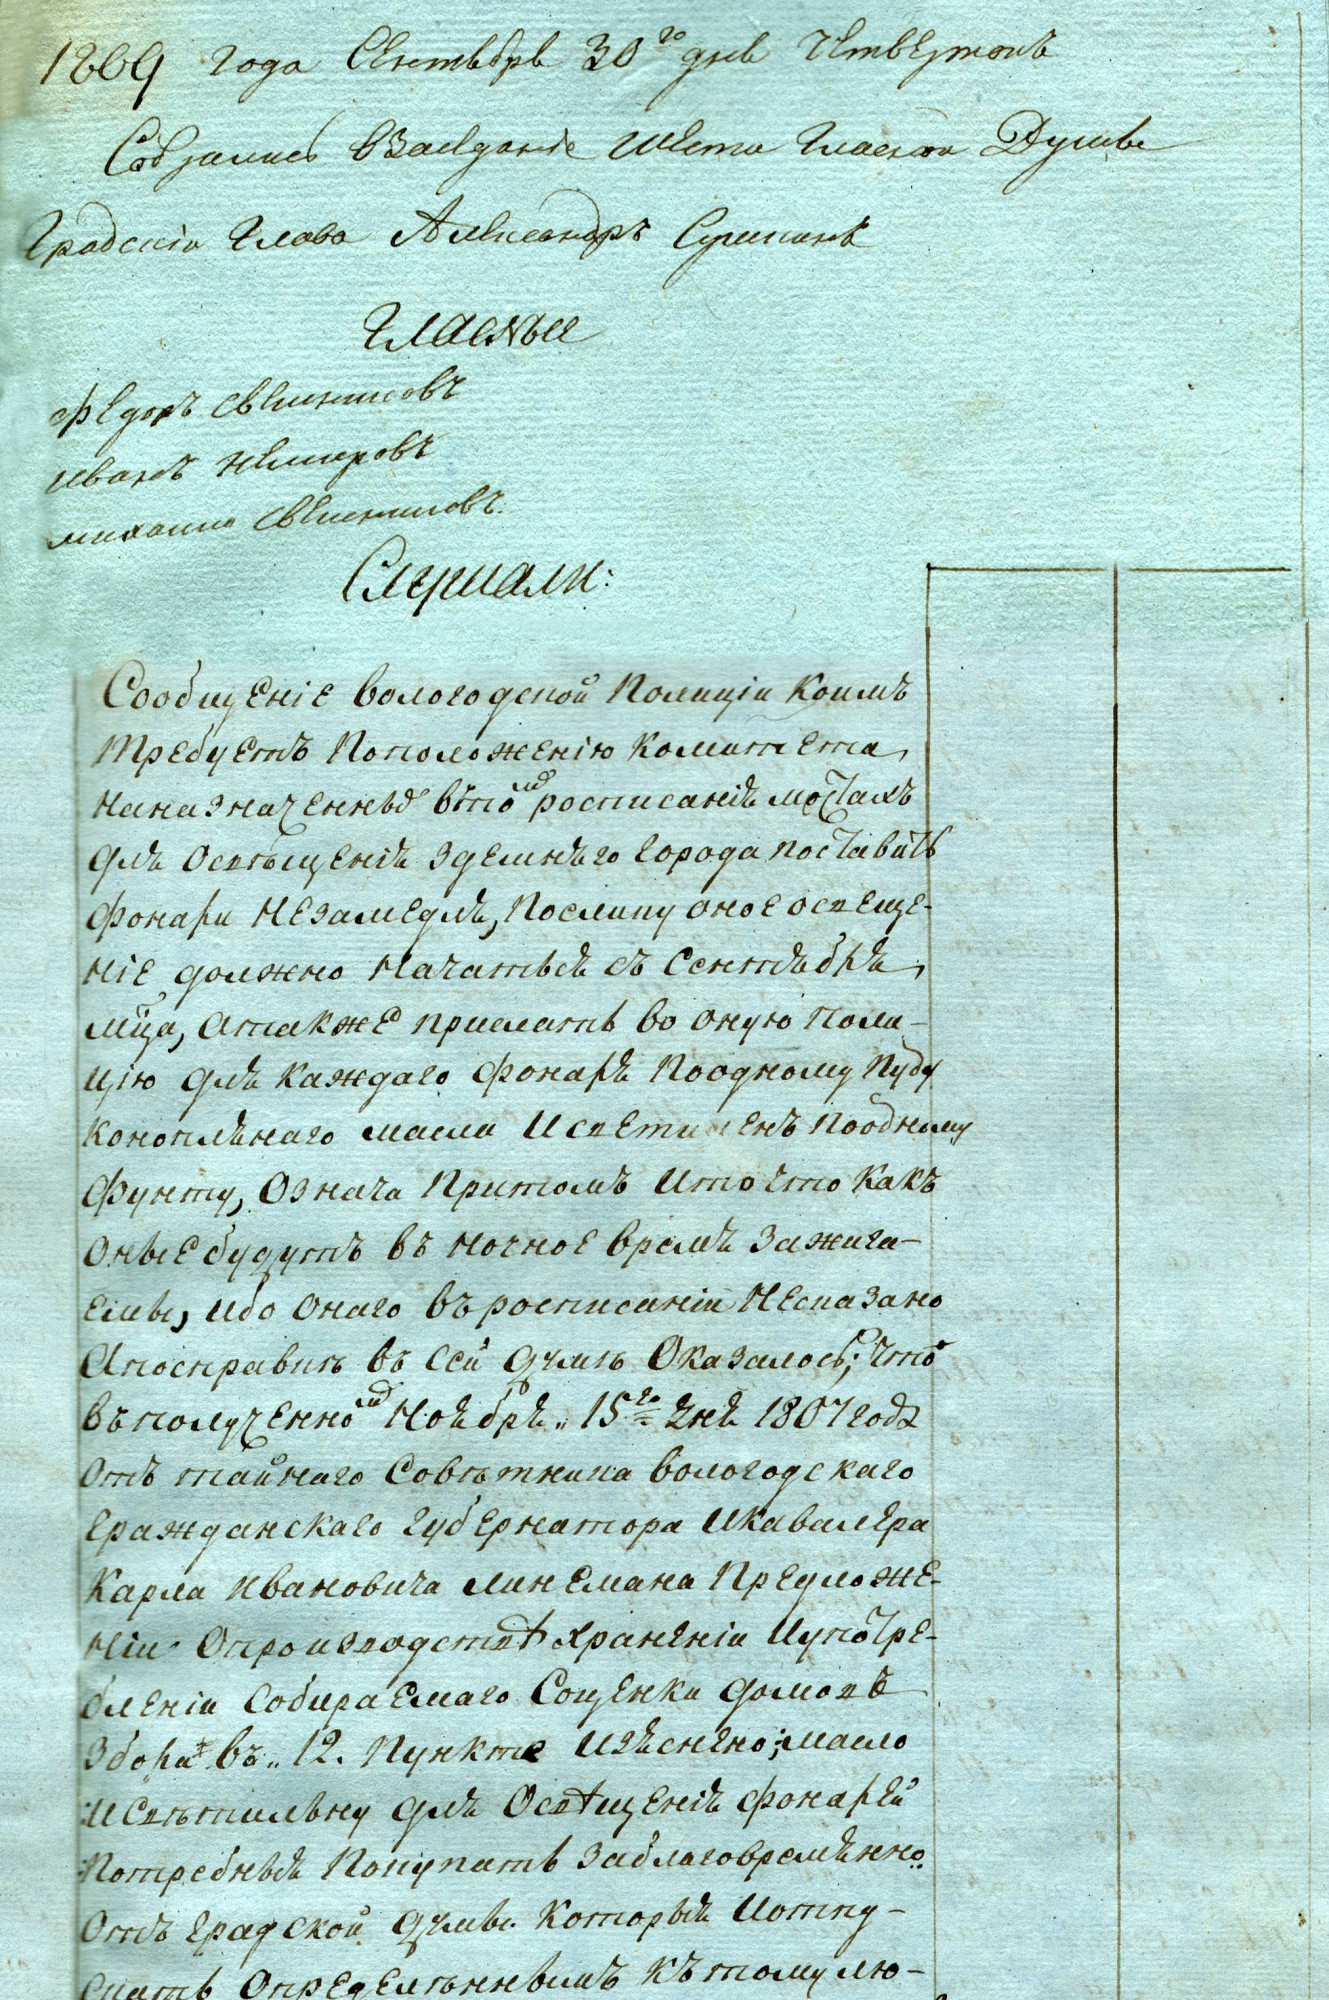 1809 года Сентября 30го дня въ Четвертокъ
Собрались в Заседание Шести Гласной Думы
Градскiй Глава Александръ
Гласные
Федоръ Свешниковъ
Иванъ Немировъ
Михайло Свешниковъ.
Слушали:
Сообщенiе вологодской Полицiи Коимъ
Требуетъ Поположенiю Комитета,
Наназначенныя втой росписанiя мостахъ
для Освѣщенiя Здешнѣго города поставить
Фонари Незамедля, Поелику оное освеще-
нiе должно Начаться съ Сентября,
мца, Атакже прислать во оную Поли-
цiю для каждаго Фонаря Поодному Пуду
коноплянаго масла И светиленъ Поодному
Фунту, Означа Притомъ Ито что Какъ
Оные будутъ въ ночное время Зажига-
емы, ибо Онаго въ росписанiи Несказано
Апосправкѣ въ Сей Думѣ Оказалось; что
въ полученной Ноября 15го дня 1807 года
Отъ тайнаго Совѣтника вологодскаго
Гражданскаго Губернатора Икавалера
Карла Ивановича Линемана Предложе-
нiи Опроизводствѣ храненiи Иупотре-
бленiи Собираемаго Соценки домовъ
Збора въ 12. Пункте Изъяснено; масло
И Свѣтильну для Освѣщенiя фонарей
Потребныя Покупать Заблаговремянно
Отъ градской Думы. Которыя Иотпу-
скать Определѣннымъ Къ тому лю-